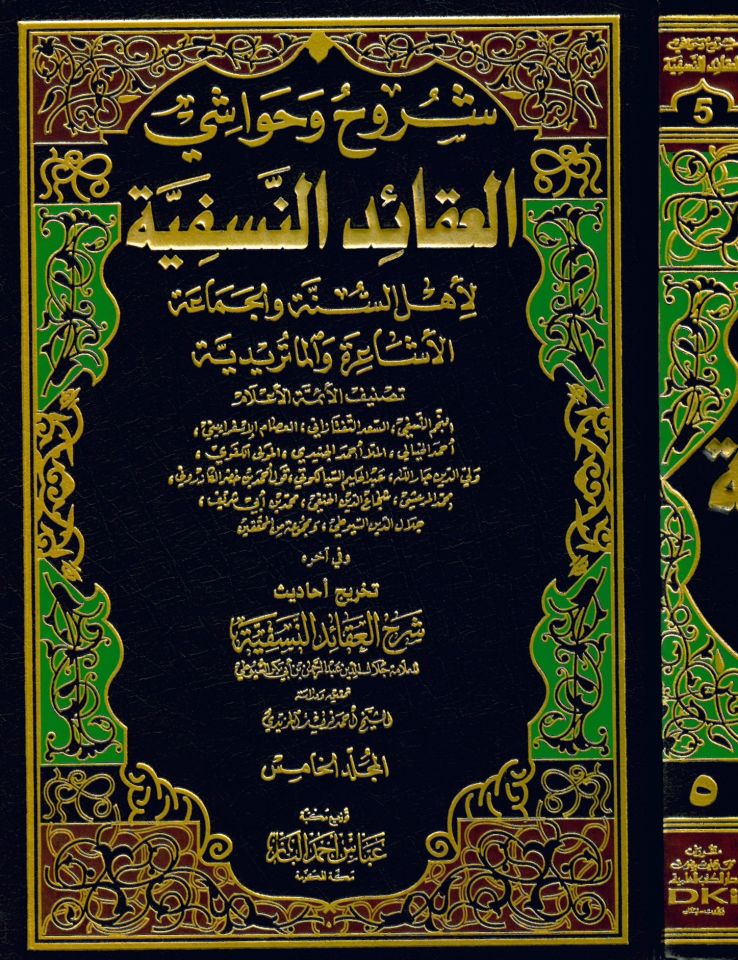 شروح وحواشي
العقائد النسفية
لأهل السنة والجماعة
الأشاعرة والماتريدية
تصنيف الأئمة الأعلام
النجم النسفي، السعد التفتازاني، العصام الإسفراييني،
أحمد الخيالي، الملا أحمد الجنيدي، المولى الكفوي،
ولي الدين جار الله، عبد الحكيم السيالكوتي، قول أحمد بن خضر
محمد المرعشي، شجاع الدين الحنفي، محمد بن أبي شريف،
جلال الدين السيوطي، ومجموعة من المحققين
وفي آخره
تخريج أحاديث
شرح العقائد النسفية
للعلامة جلال الدين عبد الرحمن بن أبي بكر السيوطي
تحقيق ودراسة
الشيخ أحمد فريد المزيدي
المجلد الخامس
توزيع مكتبة
عباس أحمد الباز
مكة المكرمة
شروح وحواشي
العقائد النسفية
5
ة
٥
دار الكتب العلمية
DKi